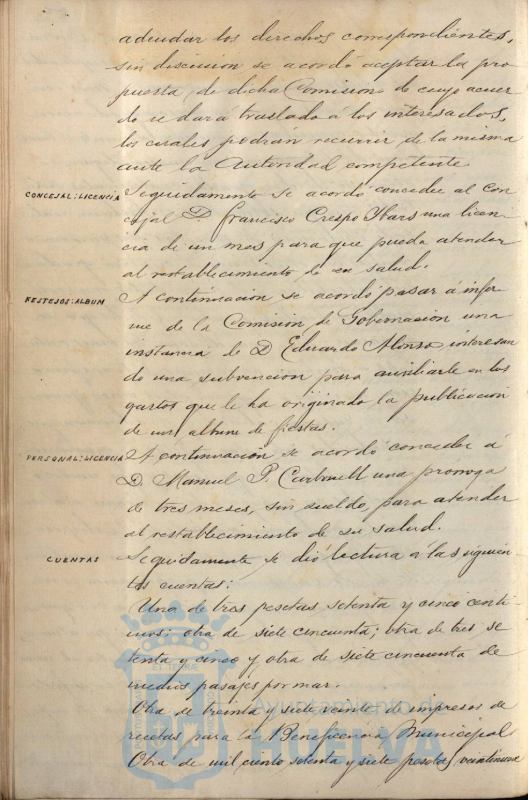 adeudar los derechos correspondientes,
sin discusion se acordó aceptar la pro
puesta de dicha Comision de cuyo acuer
do se dará traslado á los interesados,
los cuales podrán recurrir de la misma
ante la Autoridad competente.
CONCEJAL: LICENCIA Seguidamente se acordó conceder al Con
cejal D. Francisco Crespo Ybars una licen
cia de un mes para que pueda atender
al restablecimiento de su salud.
FESTEJOS: ALBUM A continuacion se acordó pasar á infor
me de la Comisión de Gobernacion una
instancia de D Eduardo Alonso interesan
do una subvencion para auxiliarle en los
gastos que le ha originado la publicacion
de un album de fiestas.
PERSONAL: LICENCIA A continuación se acordó conceder á
D. Manuel P. Carbonell una prorroga
de tres meses, sin sueldo, para atender
al restablecimiento de su salud.
CUENTAS Seguidamente se dió lectura a las siguien
tes cuentas:
Una de tres pesetas setenta y cinco centi
mos; otra de siete cincuenta; otra de tres se
tenta y cinco y otra de siete cincuenta de
medios pasajes por mar.
Otra de treinta y siete veinte de impresos de
recetas para la Beneficencia Municipal
Otra de mil ciento setenta y siete pesetas veintinueve
Ayuntamiento de
HUELVA